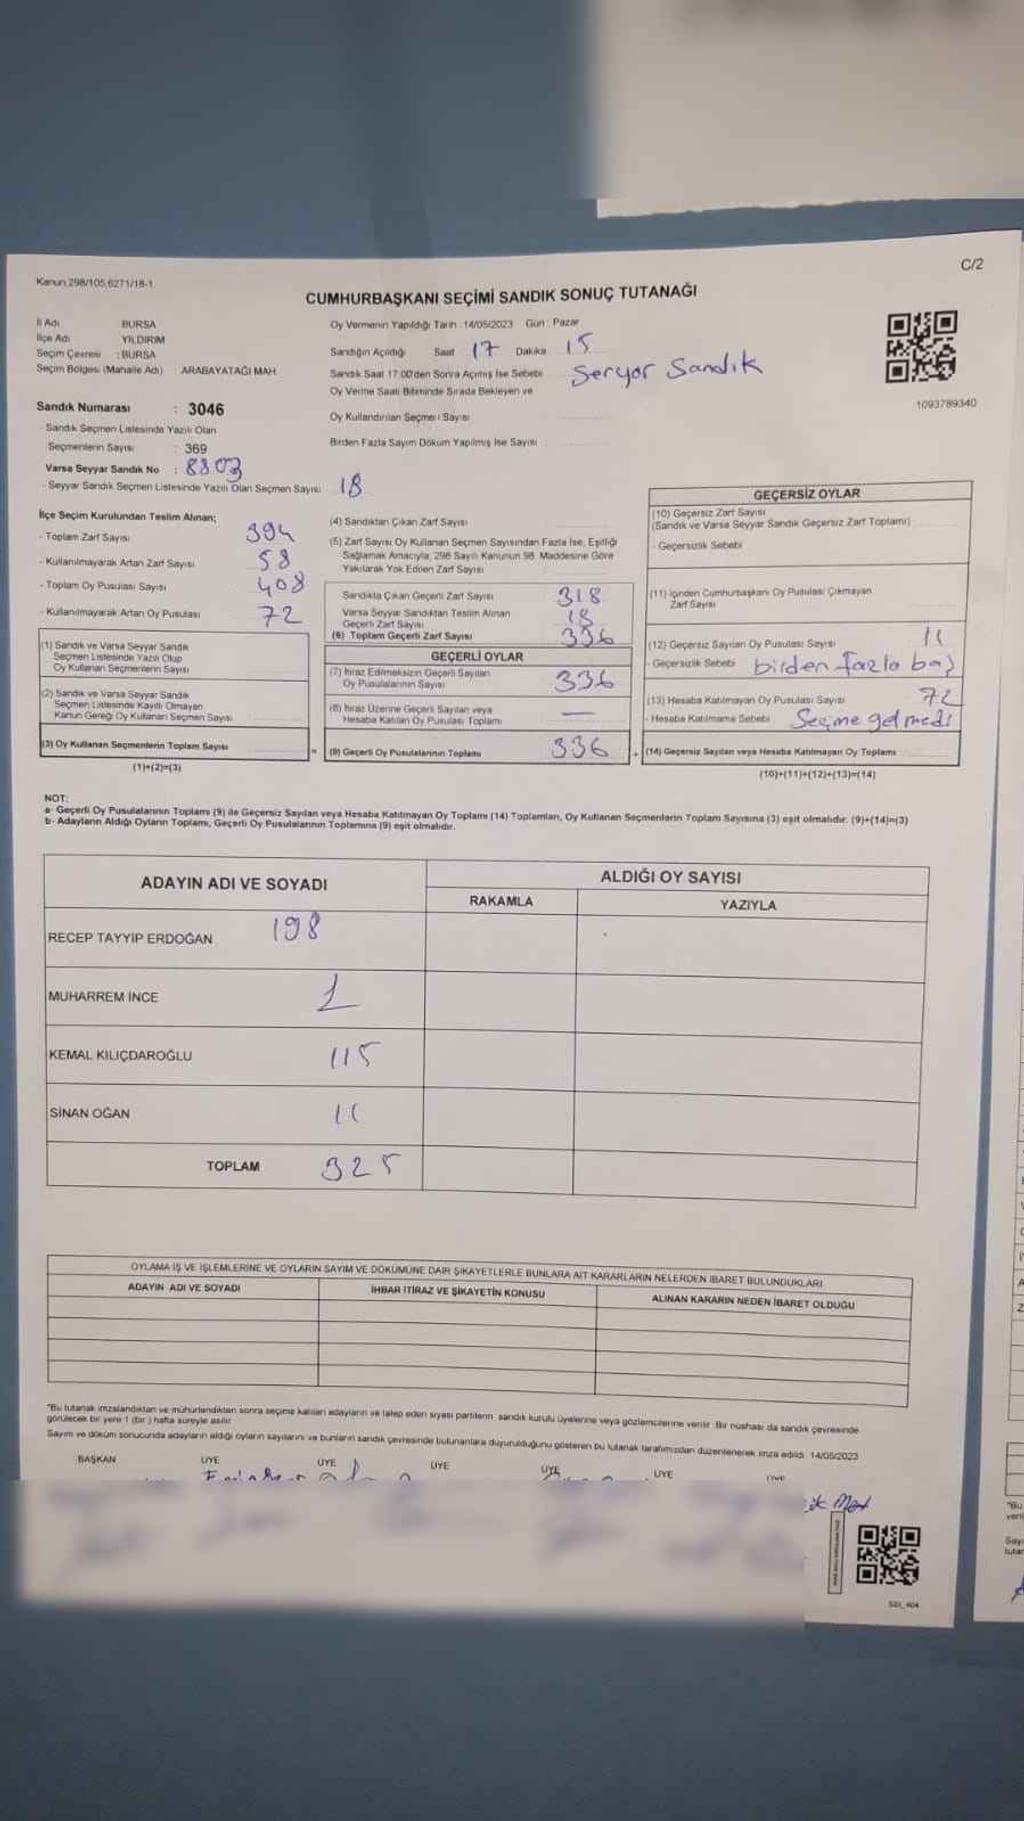 C/2
Kanun 298/105,6271/18-1
CUMHURBAŞKANI SEÇİMİ SANDIK SONUÇ TUTANAĞI
İl Adı BURSA
İlçe Adı YILDIRIM
Seçim Çevresi : BURSA
Seçim Bölgesi (Mahalle Adı) : ARABAYATAĞI MAH.
Sandık Numarası : 3046
- Sandık Seçmen Listesinde Yazılı Olan
Seçmenlerin Sayısı : 369
Varsa Seyyar Sandık No : 8803
- Seyyar Sandık Seçmen Listesinde Yazılı Olan Seçmen Sayısı 18
Oy Vermenin Yapıldığı Tarih : 14/05/2023 Gün : Pazar
Sandığın Açıldığı Saat 17 Dakika 15
Sandık Saat 17:00'den Sonra Açılmış İse Sebebi Seryor Sandık
Oy Verme Saati Bitiminde Sırada Bekleyen ve
Oy Kullandırılan Seçmen Sayısı
Birden Fazla Sayım Döküm Yapılmış İse Sayısı
1093789340
İlçe Seçim Kurulundan Teslim Alınan;
- Toplam Zarf Sayısı 394
- Kullanılmayarak Artan Zarf Sayısı 58
- Toplam Oy Pusulası Sayısı 408
- Kullanılmayarak Artan Oy Pusulası 72
(1) Sandık ve Varsa Seyyar Sandık
Seçmen Listesinde Yazılı Olup
Oy Kullanan Seçmenlerin Sayısı
(2) Sandık ve Varsa Seyyar Sandık
Seçmen Listesinde Kayıtlı Olmayan
Kanun Gereği Oy Kullanan Seçmen Sayısı
(3) Oy Kullanan Seçmenlerin Toplam Sayısı
(1)+(2)=(3)
(4) Sandıktan Çıkan Zarf Sayısı
(5) Zarf Sayısı Oy Kullanan Seçmen Sayısından Fazla İse, Eşitliği
Sağlamak Amacıyla, 298 Sayılı Kanunun 98. Maddesine Göre
Yakılarak Yok Edilen Zarf Sayısı
Sandıkta Çıkan Geçerli Zarf Sayısı 318
Varsa Seyyar Sandıktan Teslim Alınan
Geçerli Zarf Sayısı 18
(6) Toplam Geçerli Zarf Sayısı 336
GEÇERLİ OYLAR
(7) İtiraz Edilmeksizin Geçerli Sayılan
Oy Pusulalarının Sayısı 336
(8) İtiraz Üzerine Geçerli Sayılan veya
Hesaba Katılan Oy Pusulası Toplamı —
= (9) Geçerli Oy Pusulalarının Toplamı 336
GEÇERSİZ OYLAR
(10) Geçersiz Zarf Sayısı
(Sandık ve Varsa Seyyar Sandık Geçersiz Zarf Toplamı)
- Geçersizlik Sebebi
(11) İçinden Cumhurbaşkanı Oy Pusulası Çıkmayan
Zarf Sayısı
(12) Geçersiz Sayılan Oy Pusulası Sayısı 11
- Geçersizlik Sebebi birden fazla baş
(13) Hesaba Katılmayan Oy Pusulası Sayısı 72
- Hesaba Katılmama Sebebi Seçme gelmedi
+ (14) Geçersiz Sayılan veya Hesaba Katılmayan Oy Toplamı
(10)+(11)+(12)+(13)=(14)
NOT:
a- Geçerli Oy Pusulalarının Toplamı (9) ile Geçersiz Sayılan veya Hesaba Katılmayan Oy Toplamı (14) Toplamları, Oy Kullanan Seçmenlerin Toplam Sayısına (3) eşit olmalıdır. (9)+(14)=(3)
b- Adayların Aldığı Oyların Toplamı, Geçerli Oy Pusulalarının Toplamına (9) eşit olmalıdır.
ADAYIN ADI VE SOYADI ALDIĞI OY SAYISI
RAKAMLA YAZIYLA
RECEP TAYYİP ERDOĞAN 198
MUHARREM İNCE 1
KEMAL KILIÇDAROĞLU 115
SİNAN OĞAN 11
TOPLAM 325
OYLAMA İŞ VE İŞLEMLERİNE VE OYLARIN SAYIM VE DÖKÜMÜNE DAİR ŞİKAYETLERLE BUNLARA AİT KARARLARIN NELERDEN İBARET BULUNDUKLARI
ADAYIN ADI VE SOYADI İHBAR İTİRAZ VE ŞİKAYETİN KONUSU ALINAN KARARIN NEDEN İBARET OLDUĞU
"Bu tutanak imzalandıktan ve mühürlendikten sonra seçime katılan adayların ve talep eden siyasi partilerin sandık kurulu üyelerine veya gözlemcilerine verilir. Bir nüshası da sandık çevresinde
görülecek bir yere 1 (bir) hafta süreyle asılır.
Sayım ve döküm sonucunda adayların aldığı oyların sayılarını ve bunların sandık çevresinde bulunanlara duyurulduğunu gösteren bu tutanak tarafımızdan düzenlenerek imza edildi. 14/05/2023
BAŞKAN ÜYE ÜYE ÜYE ÜYE ÜYE